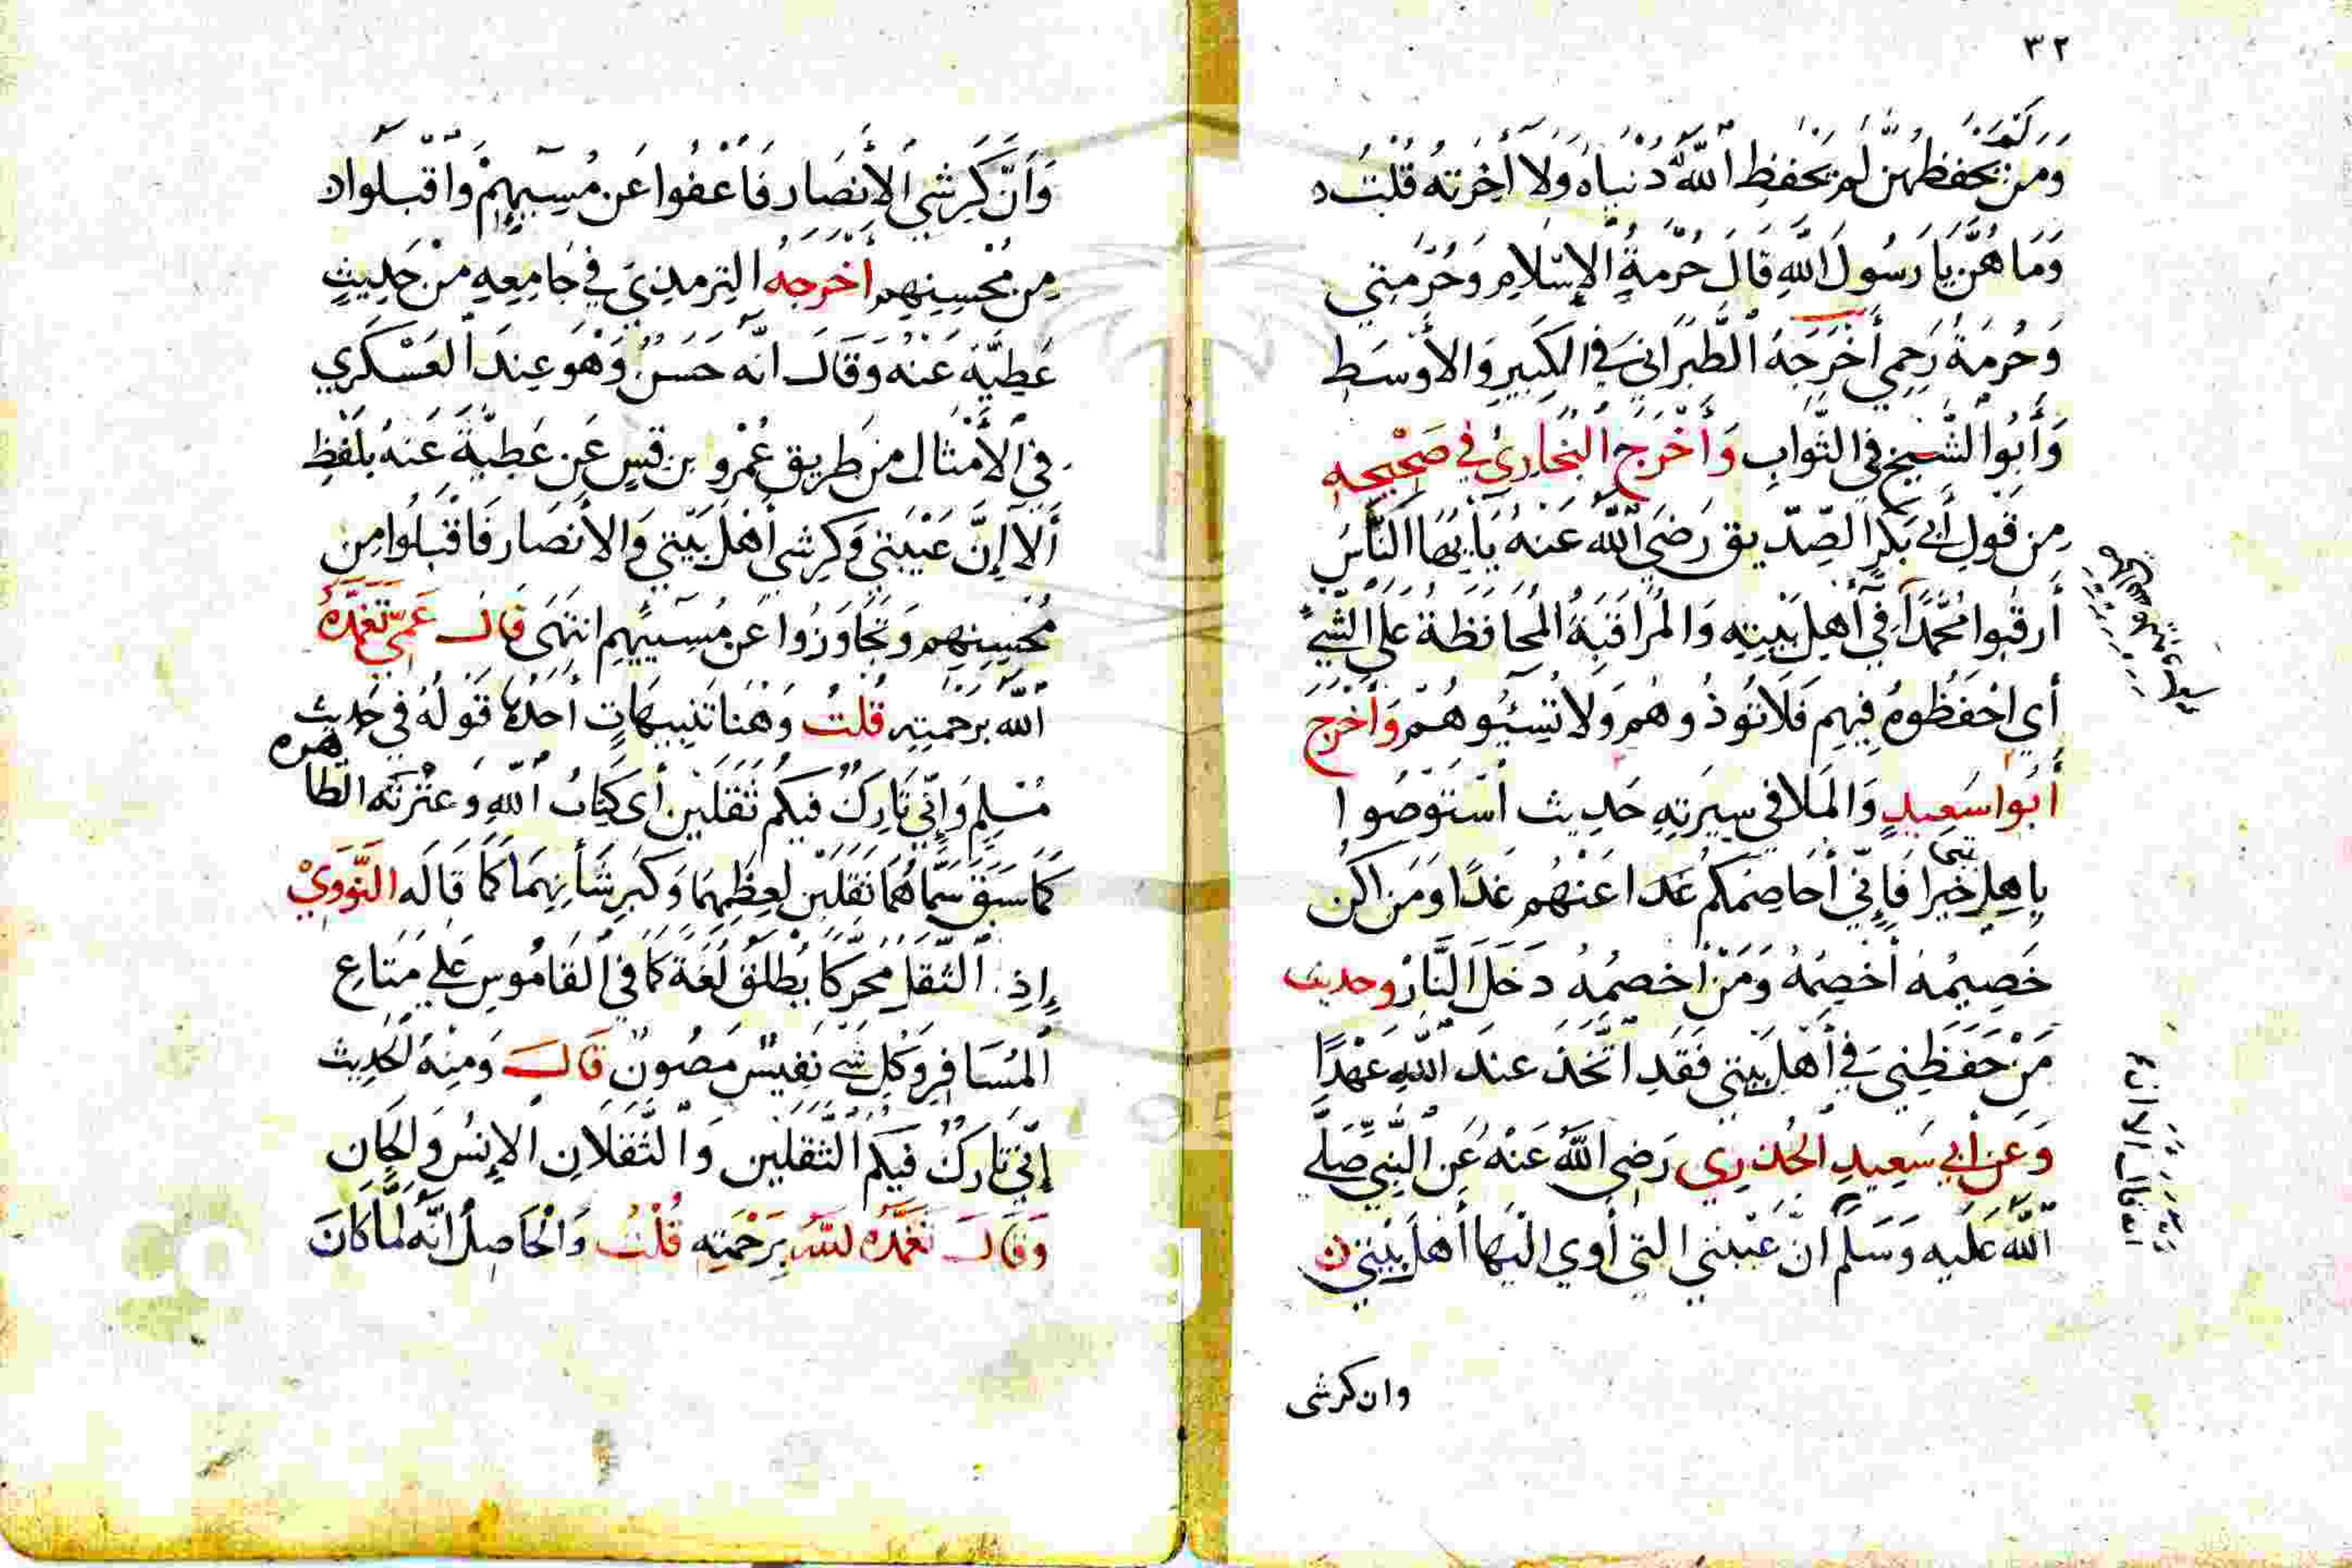 ٣٢
ولم
وَمَن يحفظهن لم يَحفظِ اللهُ دُنياهُ وَلَا آخِرَتهُ قُلْتُ
وَمَا هُنَّ يَا رَسُولَ اللهِ قَالَ حُرْمَةُ الإِسْلَامِ وَحُرْمَتِي
وَحُرمَةُ رَحِمِي أَخْرَجَهُ الطَّبَرَانِيُّ فِي الكَبِيرِ وَالأَوْسَطِ
وَأَبُوا الشَّيخِ فِي الثَّوَابِ وَأَخْرَجَ البُخَارِيُّ فِي صَحِيحِهِ
مِن قَولِ أَبِي بَكرٍ الصِّدِّيق رَضِيَ اللهُ عَنهُ يَا يُّهَا النَّاسُ
أُرقُبُوا مُحَمَّدًا فِي أَهلِ بَيتِهِ وَالمُرَاقَبَةُ المُحَافَظَةُ عَلَى الشَّيءِ
أَي احْفَظُوهُ فِيهِم فَلَا تُوذُوهُم وَلَا تُسِيُّوهُم وَأَخْرَجَ
أَبُوا سَعِيدٍ وَالمَلا فِي سِيرَتِهِ حَدِيث اسْتَوصُوا
بيتي
بِاهلِ خَيرا فَإِنِّي أُخَاصِمُكُم غدا عَنْهُم غَدًا وَمَن اكن
خَصِيمُهُ أَخصِمُهُ وَمَنْ أَخصِمُهُ دَخَلَ النَّارَ وحديث
مَنْ حَفِظَنِي فِي أَهْلِ بَيتِي فَقَدِ اتَّخَذَ عندَ اللهِ عَهْدًا
وَعَن أَبِي سَعِيدٍ الخُدْرِي رَضِيَ اللهُ عَنْهُ عَنِ النَّبِيِّ صَلَّى
اللهُ عَلَيهِ وَسَلَّمَ انَّ عَيْبَتِي التي أَوِي الَيْهَا أَهلُ بَيتِي
وان كرشى
وَأَنَّ كَرِشِيَ الأَنصَار فَاعْفُوا عَن مُسِيِّهِمْ وَاقْبَلُوا
مِن مُحْسِنِهِم أخرجه التِرمِذِيّ فِي جَامِعِهِ مِنْ حَدِيثِ
عَطِيَّةَ عَنْهُ وَقَالَ انَّه حَسَنٌ وَهْوَ عِندَ العَسْكَرِي
فِي الأَمْثَال مِن طَرِيق عَمْرو بن قيس عَن عَطِيَّةَ عَنهُ بِلَفْظِ
أَلَا إِنَّ عَيْبَتِي وَكِرشِي أَهْلُ بَيْتِي وَالأَنصَار فَاقْبَلُوا مِن
مُحْسِنِهِم وَتَجَاوَزُوا عَن مُسِيِّهِم انتَهَى قَالَ عَمِّي تَغَمَّدَهُ
اللهُ بِرَحْمَتِهِ قُلتُ وَهْنَا تَنبِيهَاتٍ أَحَدُهَا قَولُهُ فِي حَدِيث
مُسْلِمٍ وَإِنِّي تَارِكٌ فِيكُم ثَقَلَيْنِ أَى كِتَابُ اللهِ وَعتْرَتَه الطَّاهره
كَمَا سَبَقَ سَمَّاهُمَا ثَقَلَيْنِ لِعِظَمِهِمَا وَكَبِرِ شَأْنِهِمَا كَمَا قَالَه النَّوَوِيُّ
إِذِ الثَّقَل محركًا يُطلَقُ لُغَةً كَمَا فِي القَامُوسِ عَلَى مَتَاعِ
المُسَافِرِ وَكُلِّ شَيءٍ نَفِيسٍ مَصُونٍ قَالَ وَمِنْهُ الحَدِيث
إِنِّي تَارِكٌ فِيكُم الثَّقَلَيْنِ وَالثَّقَلَانِ الإِنْسُ وَالجَانِ
وَقَالَ تَغَمَّدَهُ اللهُ بِرَحْمَتِهِ قُلْتُ وَالْحَاصِلُ انَّهُ لَمَّا كَانَ